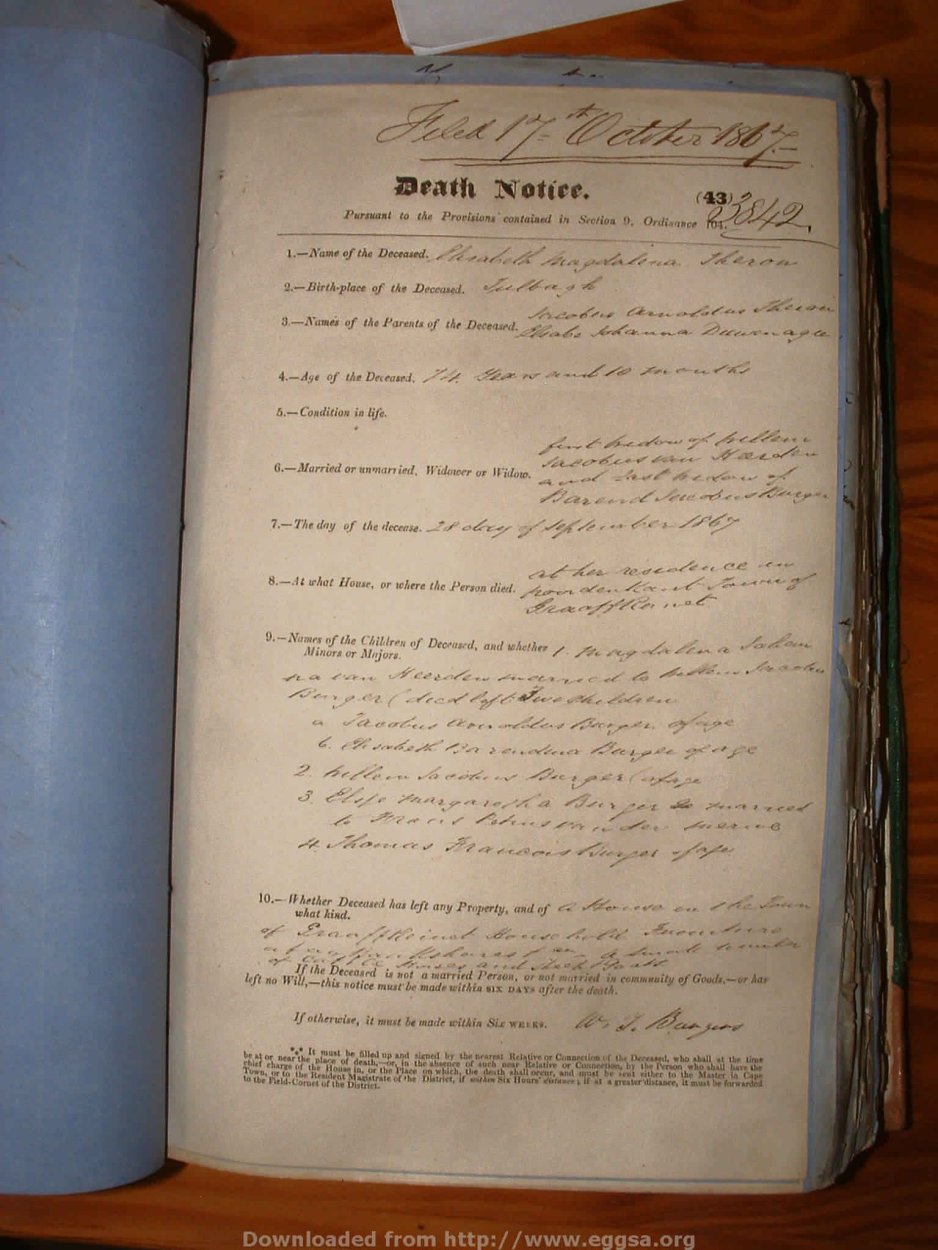 Filed 17th October 1867.
Death Notice.
(43)
3842.
Pursuant to the Provisions contained in Section 9, Ordinance 104.
1.—Name of the Deceased. Elisabeth Magdalena Theron
2.—Birth-place of the Deceased. Tulbagh
Jacobus Arnoldus Theron
3.—Names of the Parents of the Deceased. Elsabe Johanna Duvenage
4.—Age of the Deceased. 74 Years and 10 months
5.—Condition in life.
first widow of Willem
Jacobus van Heerden
6.—Married or unmarried, Widower or Widow. and last widow of
Barend Jacobus Burger
7.—The day of the decease. 28 day of September 1867
at her residence in
8.—At what House, or where the Person died. Town of
Graaff Reinet
9.—Names of the Children of Deceased, and whether 1. Magdalena Johan
Minors or Majors.
na van Heerden married to Willem Jacobus
Burger (died left Two children
a Jacobus Arnoldus Burger of age
b. Elisabeth Barendina Burger of age
2. Willem Jacobus Burger (of age
3. Elsje Margaretha Burger married
to Frans Petrus van der Merwe
4. Thomas Francois Burger of age
10.—Whether Deceased has left any Property, and of A House in the Town
what kind.
of Graaff Reinet Household Furniture
a few Bankshares a small number
of Cattle Horses and
If the Deceased is not a married Person, or not married in community of Goods,—or has
left no Will,—this notice must be made within SIX DAYS after the death.
If otherwise, it must be made within SIX WEEKS. Burgers
*** It must be filled up and signed by the nearest Relative or Connection of the Deceased, who shall at the time
be at or near the place of death,—or, in the absence of such near Relative or Connection, by the Person who shall have the
chief charge of the House in, or the Place on which, the death shall occur, and must be sent either to the Master in Cape
Town, or to the Resident Magistrate of the District, if within Six Hours' distance; if at a greater distance, it must be forwarded
to the Field-Cornet of the District.
Downloaded from http://www.eggsa.org